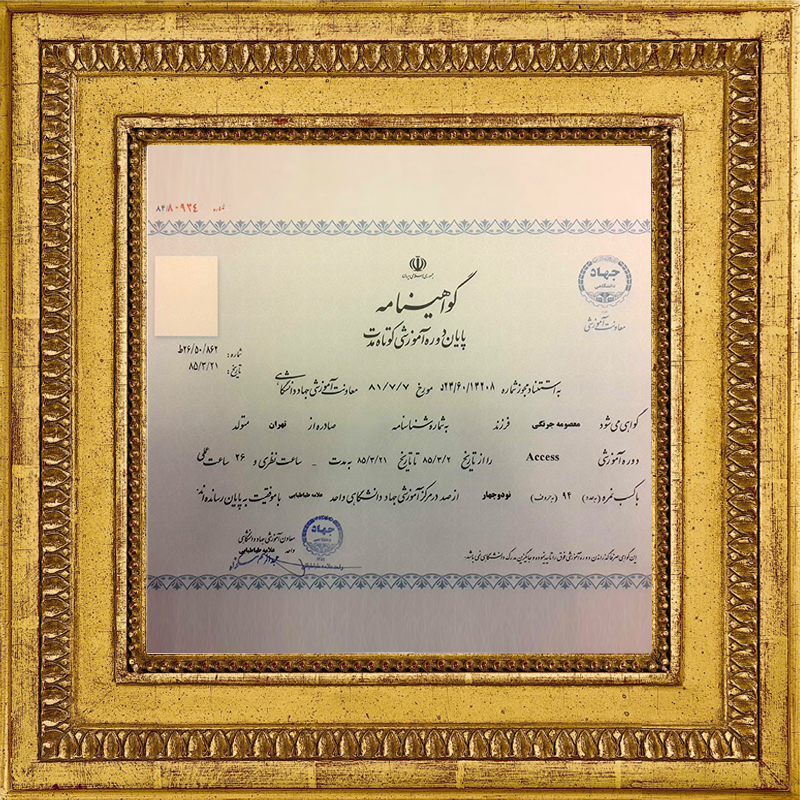 ۸۴/۸۰۹۲٤
جمهوری اسلامی ایران
جهاد
دانشگاهی
معاونت آموزشی
گواهینامه
پایان دوره آموزشی کوتاه مدت
شماره: ۲۶/۵۰/۸۶۲ط
تاریخ: ۸۵/۳/۲۱
به استناد مجوز شماره ۵۲۴/۶۰/۱۳۲۰۸ مورخ ۸۱/۷/۷ معاونت آموزشی جهاد دانشگاهی
گواهی می شود معصومه جرنگی فرزند به شماره شناسنامه صادره از تهران متولد
دوره آموزشی Access را از تاریخ ۸۵/۳/۲ تا تاریخ ۸۵/۳/۲۱ به مدت _ ساعت نظری و ۲۶ ساعت عملی
با کسب نمره (به عدد) ۹۴ (به حروف) نودوچهار از صد در مرکز آموزشی جهاد دانشگاهی واحد علامه طباطبایی با موفقیت به پایان رسانده اند.
معاون آموزشی جهاد دانشگاهی
واحد علامه طباطبایی
جهاد
دانشگاهی
واحد علامه طباطبائی
این گواهی صرفا گذراندن دوره آموزشی فوق را تایید نموده و جایگزین مدرک دانشگاهی نمی باشد.